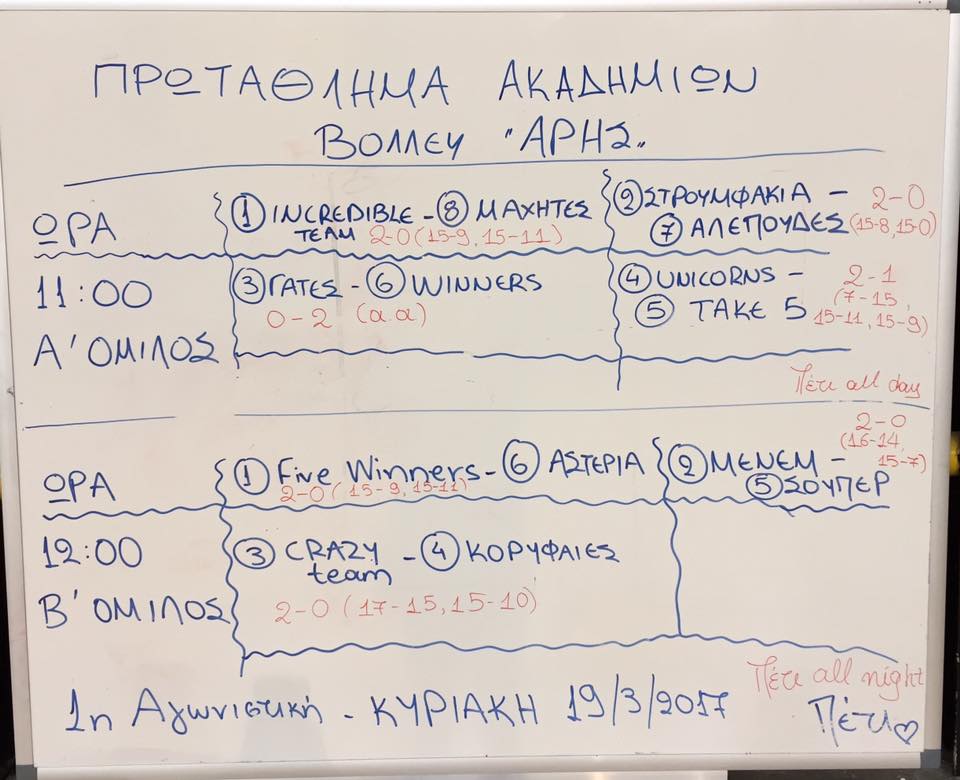 ΠΡΩΤΑΘΛΗΜΑ ΑΚΑΔΗΜΙΩΝ
ΒΟΛΛΕΥ "ΑΡΗΣ"
ΩΡΑ
11:00
Α' ΟΜΙΛΟΣ
① INCREDIBLE - ⑧ ΜΑΧΗΤΕΣ
TEAM 2-0 (15-9, 15-11)
② ΣΤΡΟΥΜΦΑΚΙΑ - 2-0
⑦ ΑΛΕΠΟΥΔΕΣ (15-8, 15-0)
③ ΓΑΤΕΣ - ⑥ WINNERS
0-2 (α.α)
④ UNICORNS - 2-1
⑤ TAKE 5 (7-15,
15-11, 15-9)
Πέτι all day
ΩΡΑ
12:00
Β' ΟΜΙΛΟΣ
① Five Winners - ⑥ ΑΣΤΕΡΙΑ
2-0 (15-9, 15-11)
② ΜΕΝΕΜ - 2-0
(16-14,
15-7)
⑤ ΣΟΥΠΕΡ
③ CRAZY - ④ ΚΟΡΥΦΑΙΕΣ
team
2-0 (17-15, 15-10)
Πέτι all night
1η Αγωνιστική - ΚΥΡΙΑΚΗ 19/3/2017
Πέτι♡